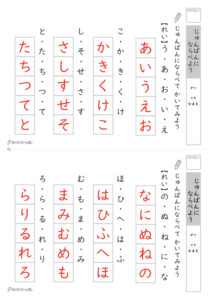 じゅんばんに
ならべよう
がつ
にち
なまえ
じゅんばんに ならべて かいてみよう
【れい】う・あ・お・い・え
あいうえお
こ・か・き・く・け
かきくけこ
し・そ・せ・さ・す
さしすせそ
と・た・ち・つ・て
たちつてと
じゅんばんに
ならべよう
がつ
にち
なまえ
じゅんばんに ならべて かいてみよう
【れい】の・ぬ・ね・に・な
なにぬねの
ほ・ひ・へ・は・ふ
はひふへほ
む・も・ま・め・み
まみむめも
ろ・ら・る・れ・り
らりるれろ